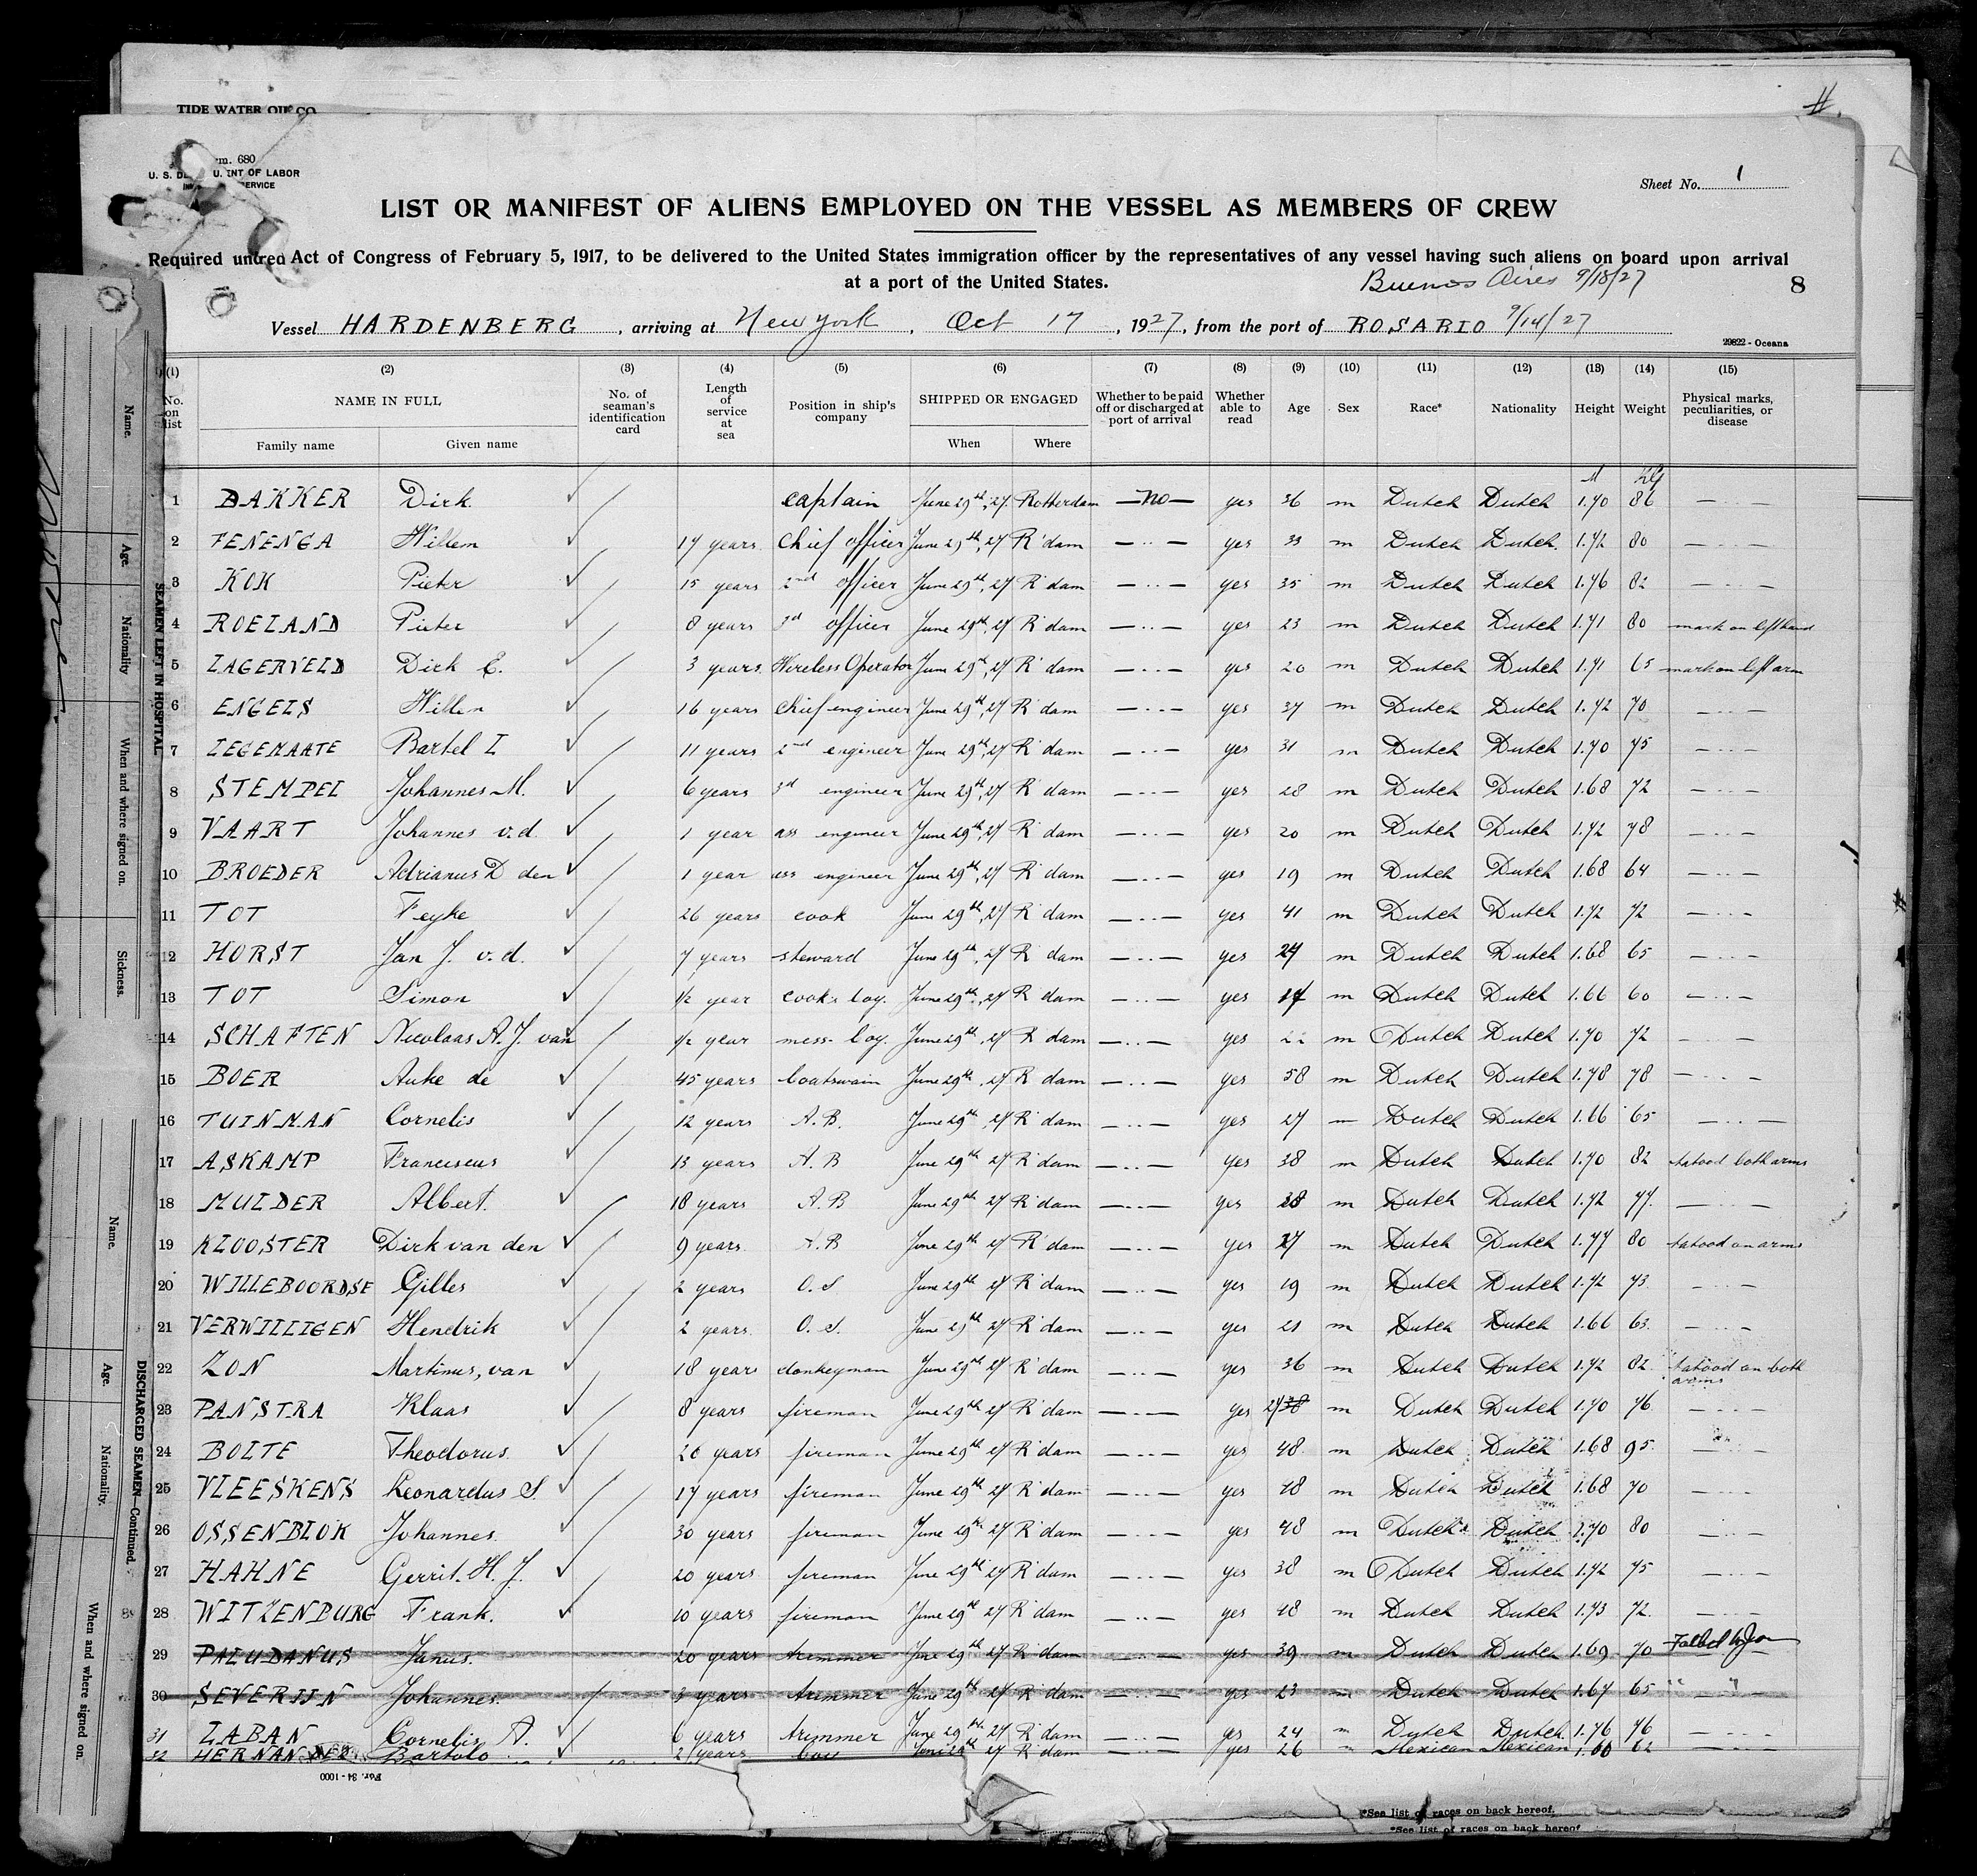 TIDE WATER OIL CO
#.
rm. 680
U. S. DE UENT OF LABOR
SERVICE
Sheet No. 1
LIST OR MANIFEST OF ALIENS EMPLOYED ON THE VESSEL AS MEMBERS OF CREW
Required under Act of Congress of February 5, 1917, to be delivered to the United States immigration officer by the representatives of any vessel having such aliens on board upon arrival
at a port of the United States.
Buenos Aires 9/18/27
8
Vessel HARDENBERG, arriving at New York, Oct 17, 1927, from the port of ROSARIO 9/14/27
29822 - Oceana
(1) (2) (3) (4) (5) (6) (7) (8) (9) (10) (11) (12) (13) (14) (15)
No. on list NAME IN FULL Family name Given name No. of seaman's identification card Length of service at sea Position in ship's company SHIPPED OR ENGAGED When Where Whether to be paid off or discharged at port of arrival Whether able to read Age Sex Race* Nationality Height Weight Physical marks, peculiarities, or disease
M KG
1 BAKKER Dirk captain June 29th, 27 Rotterdam — no — yes 36 m Dutch Dutch 1.70 86 — · · —
2 FENENGA Willem 17 years Chief officer June 29th, 27 R'dam — · · — yes 33 m Dutch Dutch. 1.72 80 — · · —
3 KOK Pieter 15 years 2nd officer June 29th, 27 R'dam — · · — yes 35 m Dutch Dutch 1.76 82 — · · —
4 ROELAND Pieter 8 years 3d officer June 29th, 27 R'dam — · · — yes 23 m Dutch Dutch 1.71 80 mark on left hand
5 LAGERVELD Dirk E. 3 years Wireless Operator June 29th, 27 R'dam — · · — yes 20 m Dutch Dutch 1.71 65 mark on left arm
6 ENGELS Willem 16 years Chief engineer June 29th, 27 R'dam — · · — yes 37 m Dutch Dutch 1.72 70 — · · —
7 LEGEMAATE Bartel I 11 years 2nd engineer June 29th, 27 R'dam — · · — yes 31 m Dutch Dutch 1.70 75 — · · —
8 STEMPEL Johannes M. 6 years 3d engineer June 29th, 27 R'dam — · · — yes 28 m Dutch Dutch 1.68 72 — · · —
9 VAART Johannes v.d. 1 year ass engineer June 29th, 27 R'dam — · · — yes 20 m Dutch Dutch 1.72 78 — · · —
10 BROEDER Adrianus D den 1 year ass engineer June 29th, 27 R'dam — · · — yes 19 m Dutch Dutch 1.68 64 — · · —
11 TOT Feyke 26 years cook June 29th, 27 R'dam — · · — yes 41 m Dutch Dutch 1.72 72 — · · —
12 HORST Jan J. v.d. 7 years steward June 29th, 27 R'dam — · · — yes 27 m Dutch Dutch 1.68 65 — · · —
13 TOT Simon 1/2 year cooks boy June 29th, 27 R'dam — · · — yes 17 m Dutch Dutch 1.66 60 — · · —
14 SCHAFTEN Nicolaas A. J. van 1/2 year mess-boy June 29th, 27 R'dam — · · — yes 22 m Dutch Dutch 1.70 72 — · · —
15 BOER Auke de 45 years boatswain June 29th, 27 R'dam — · · — yes 58 m Dutch Dutch 1.78 78 — · · —
16 TUINMAN Cornelis 12 years A.B. June 29th, 27 R'dam — · · — yes 27 — Dutch Dutch 1.66 65 — · · —
17 ASKAMP Franciscus 13 years A.B June 29th 27 R'dam — · · — yes 38 m Dutch Dutch 1.70 82 tatood both arms
18 MULDER Albert. 18 years A.B June 29th 27 R'dam — · · — yes 38 m Dutch Dutch 1.72 77. — · · —
19 KLOOSTER Dirk van den 9 years A.B June 29th 27 R'dam — · · — yes 27 m Dutch Dutch 1.77 80 tatood on arms
20 WILLEBOORDSE Gilles 2 years O.S June 29th 27 R'dam — · · — yes 19 m Dutch Dutch 1.72 73 — · · —
21 VERWILLIGEN Hendrik 2 years O.S. June 29th 27 R'dam — · · — yes 21 m Dutch Dutch 1.66 63. — · · —
22 ZON Martinus, van 18 years donkeyman June 29th 27 R'dam — · · — yes 36 m Dutch Dutch 1.72 82 tatood on both arms
23 PANSTRA Klaas 8 years fireman June 29th 27 R'dam — · · — yes 27 38 m Dutch Dutch 1.70 76 — · · —
24 BOLTE Theodorus 26 years fireman June 29th 27 R'dam — · · — yes 48 m Dutch Dutch 1.68 95. — · · —
25 VLEESKENS Leonardus S. 17 years fireman June 29th 27 R'dam — · · — yes 48 m Dutch Dutch 1.68 70 — · · —
26 OSSENBLOK Johannes. 30 years fireman June 29th 27 R'dam — · · — yes 48 m Dutch Dutch 1.70 80 — · · —
27 HAHNE Gerrit. H. J. 20 years fireman June 29th 27 R'dam — · · — yes 38 m Dutch Dutch 1.72 75 — · · —
28 WITZENBURG Frank. 10 years fireman June 29th 27 R'dam — · · — yes 48 m Dutch Dutch 1.73 72. — · · —
29 PALUDANUS Janus. 20 years trimmer June 29th 27 R'dam — · · — yes 39 m Dutch Dutch 1.69 70 Failed to Join
30 SEVERIJN Johannes. 3 years trimmer June 29th 27 R'dam — · · — yes 23 m Dutch Dutch 1.67 65 " "
31 LABAN Cornelis A. 6 years trimmer June 29th 27 R'dam — · · — yes 24 m Dutch Dutch. 1.76 76 — · · —
32 HERNANDEZ Bartolo 2 years boy June 29th 27 R'dam — · · — yes 26 m Mexican Mexican 1.60 62 — · · —
For. 34-1000
*See list of races on back hereof.
*See list of races on back hereof
Name.
Age.
Nationality
When and where signed on.
Sickness.
SEAMEN LEFT IN HOSPITAL
Name.
Age.
Nationality.
When and where signed on.
DISCHARGED SEAMEN—Continued.